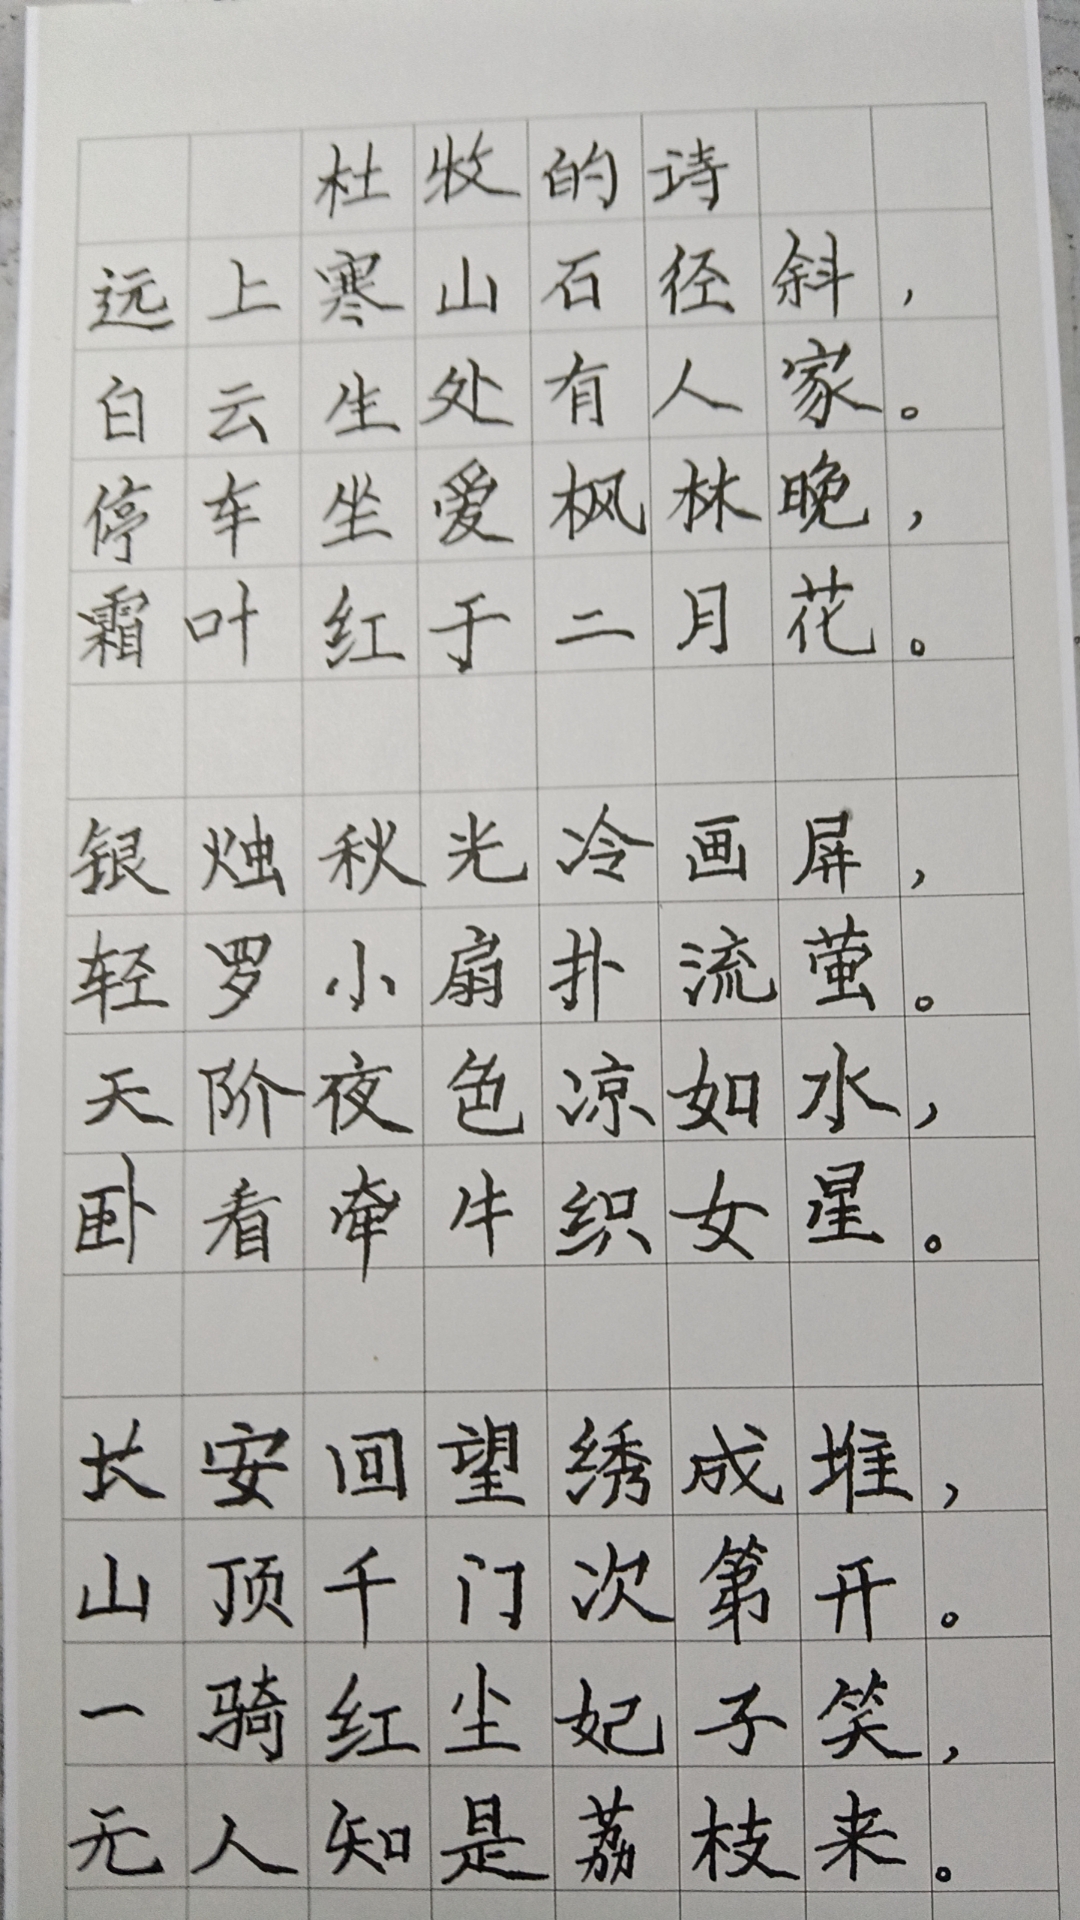 杜牧的诗
远上寒山石径斜，
白云生处有人家。
停车坐爱枫林晚，
霜叶红于二月花。
银烛秋光冷画屏，
轻罗小扇扑流萤。
天阶夜色凉如水，
卧看牵牛织女星。
长安回望绣成堆，
山顶千门次第开。
一骑红尘妃子笑，
无人知是荔枝来。